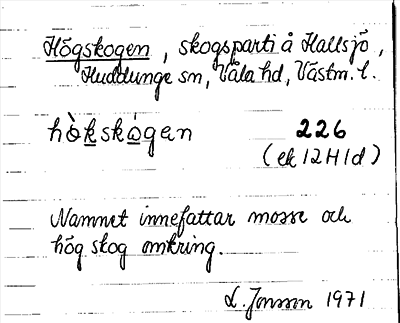 Högskogen, skogsparti å Hallsjö,
Huddunge sn, Våla hd, Västm. l.
hò̀kskó̀gen 226
(ek 12H1d)
Namnet innefattar mosse och
hög skog omkring.
L. Jonsson 1971